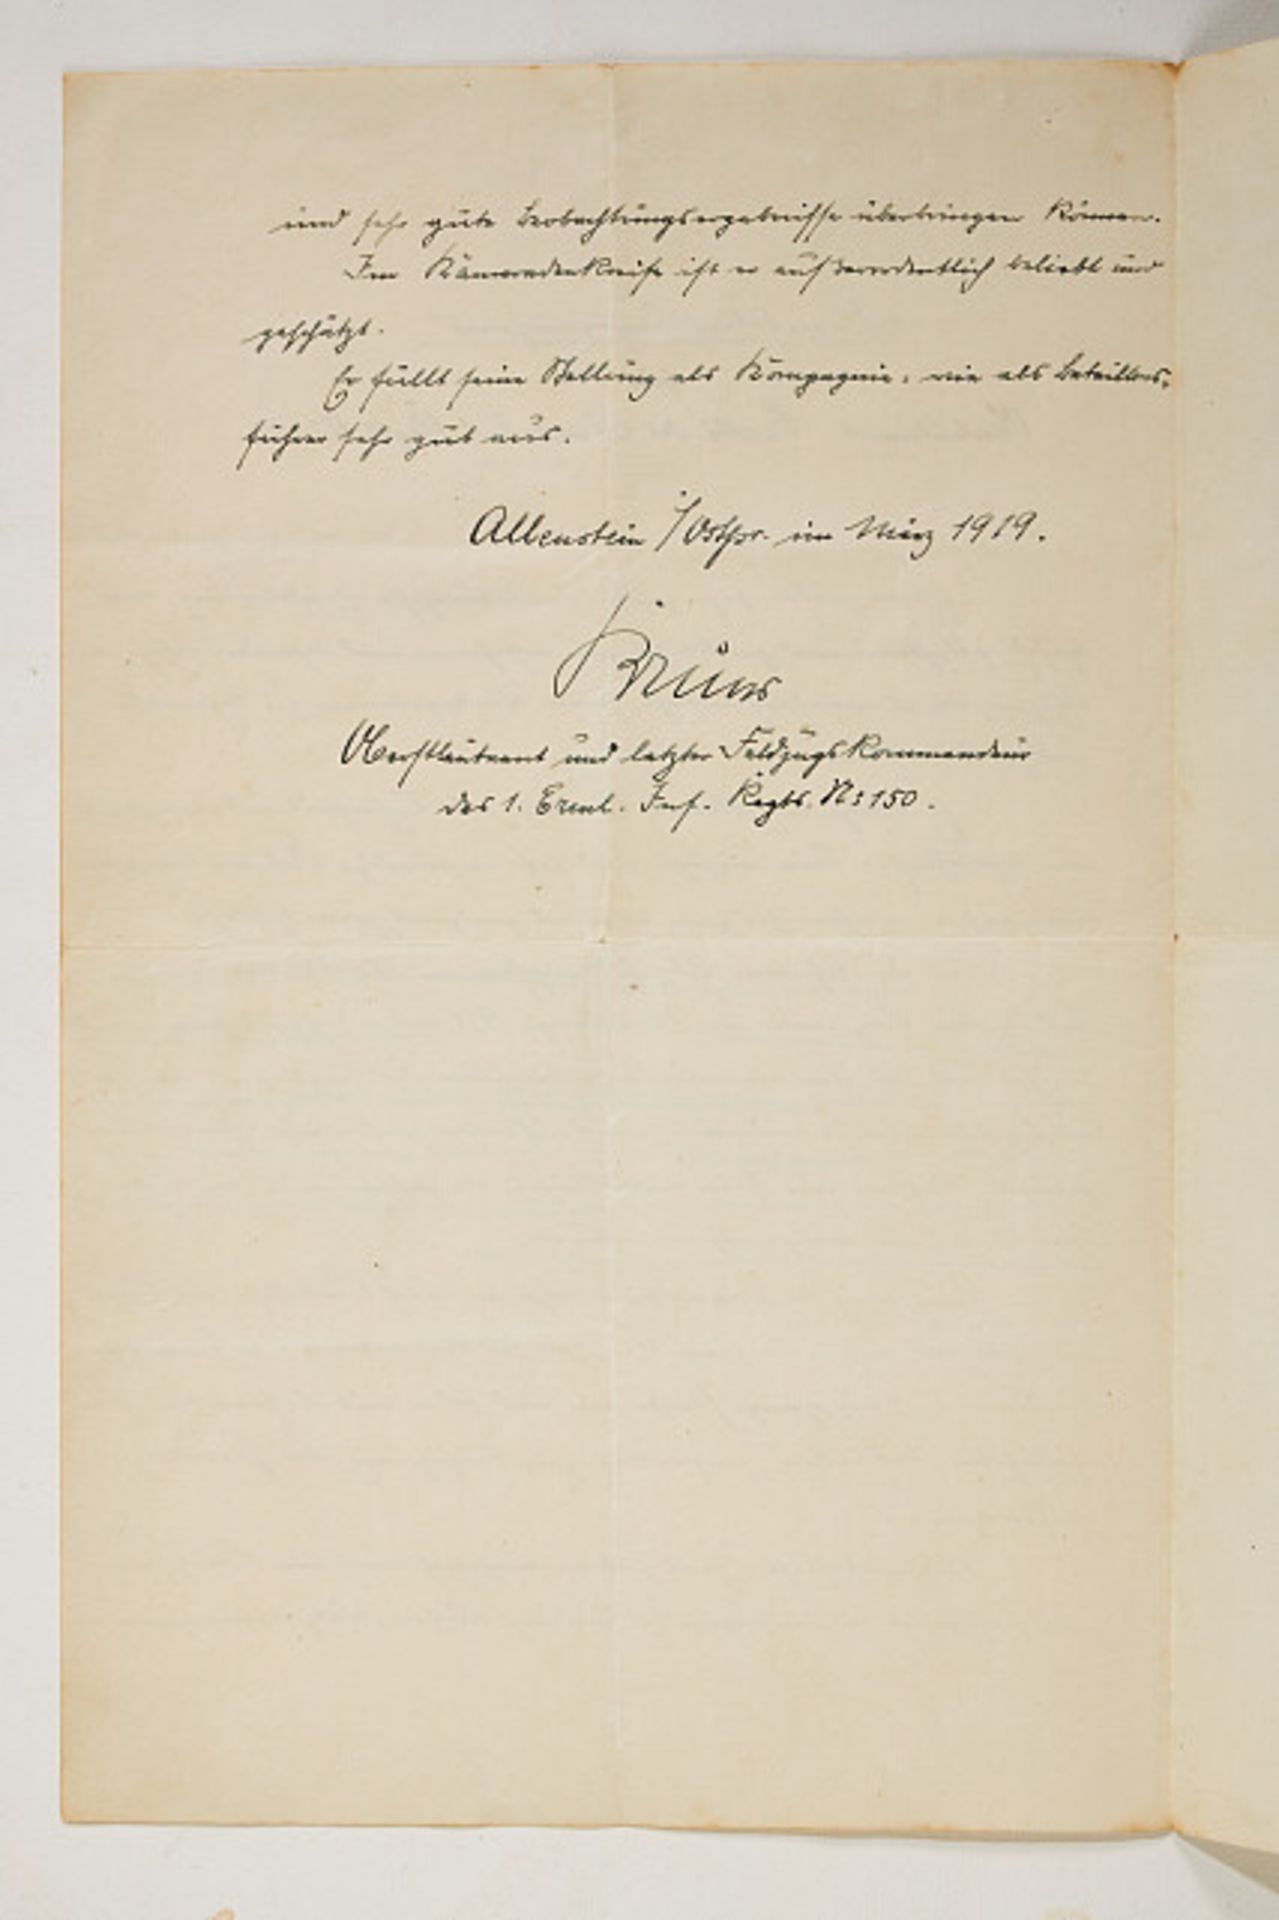 und sehr gute Beobachtungsergebnisse überbringen können.
Im Kameradenkreise ist er außerordentlich beliebt und
geschätzt.
Er füllt seine Stellung als Kompagnie, wie als Bataillons-
führer sehr gut aus.
Allenstein i/Ostpr. im März 1919.
Bruns
Oberstleutnant und letzter Feldzugskommandeur
des 1. Erml. Inf. Regts. No 150.